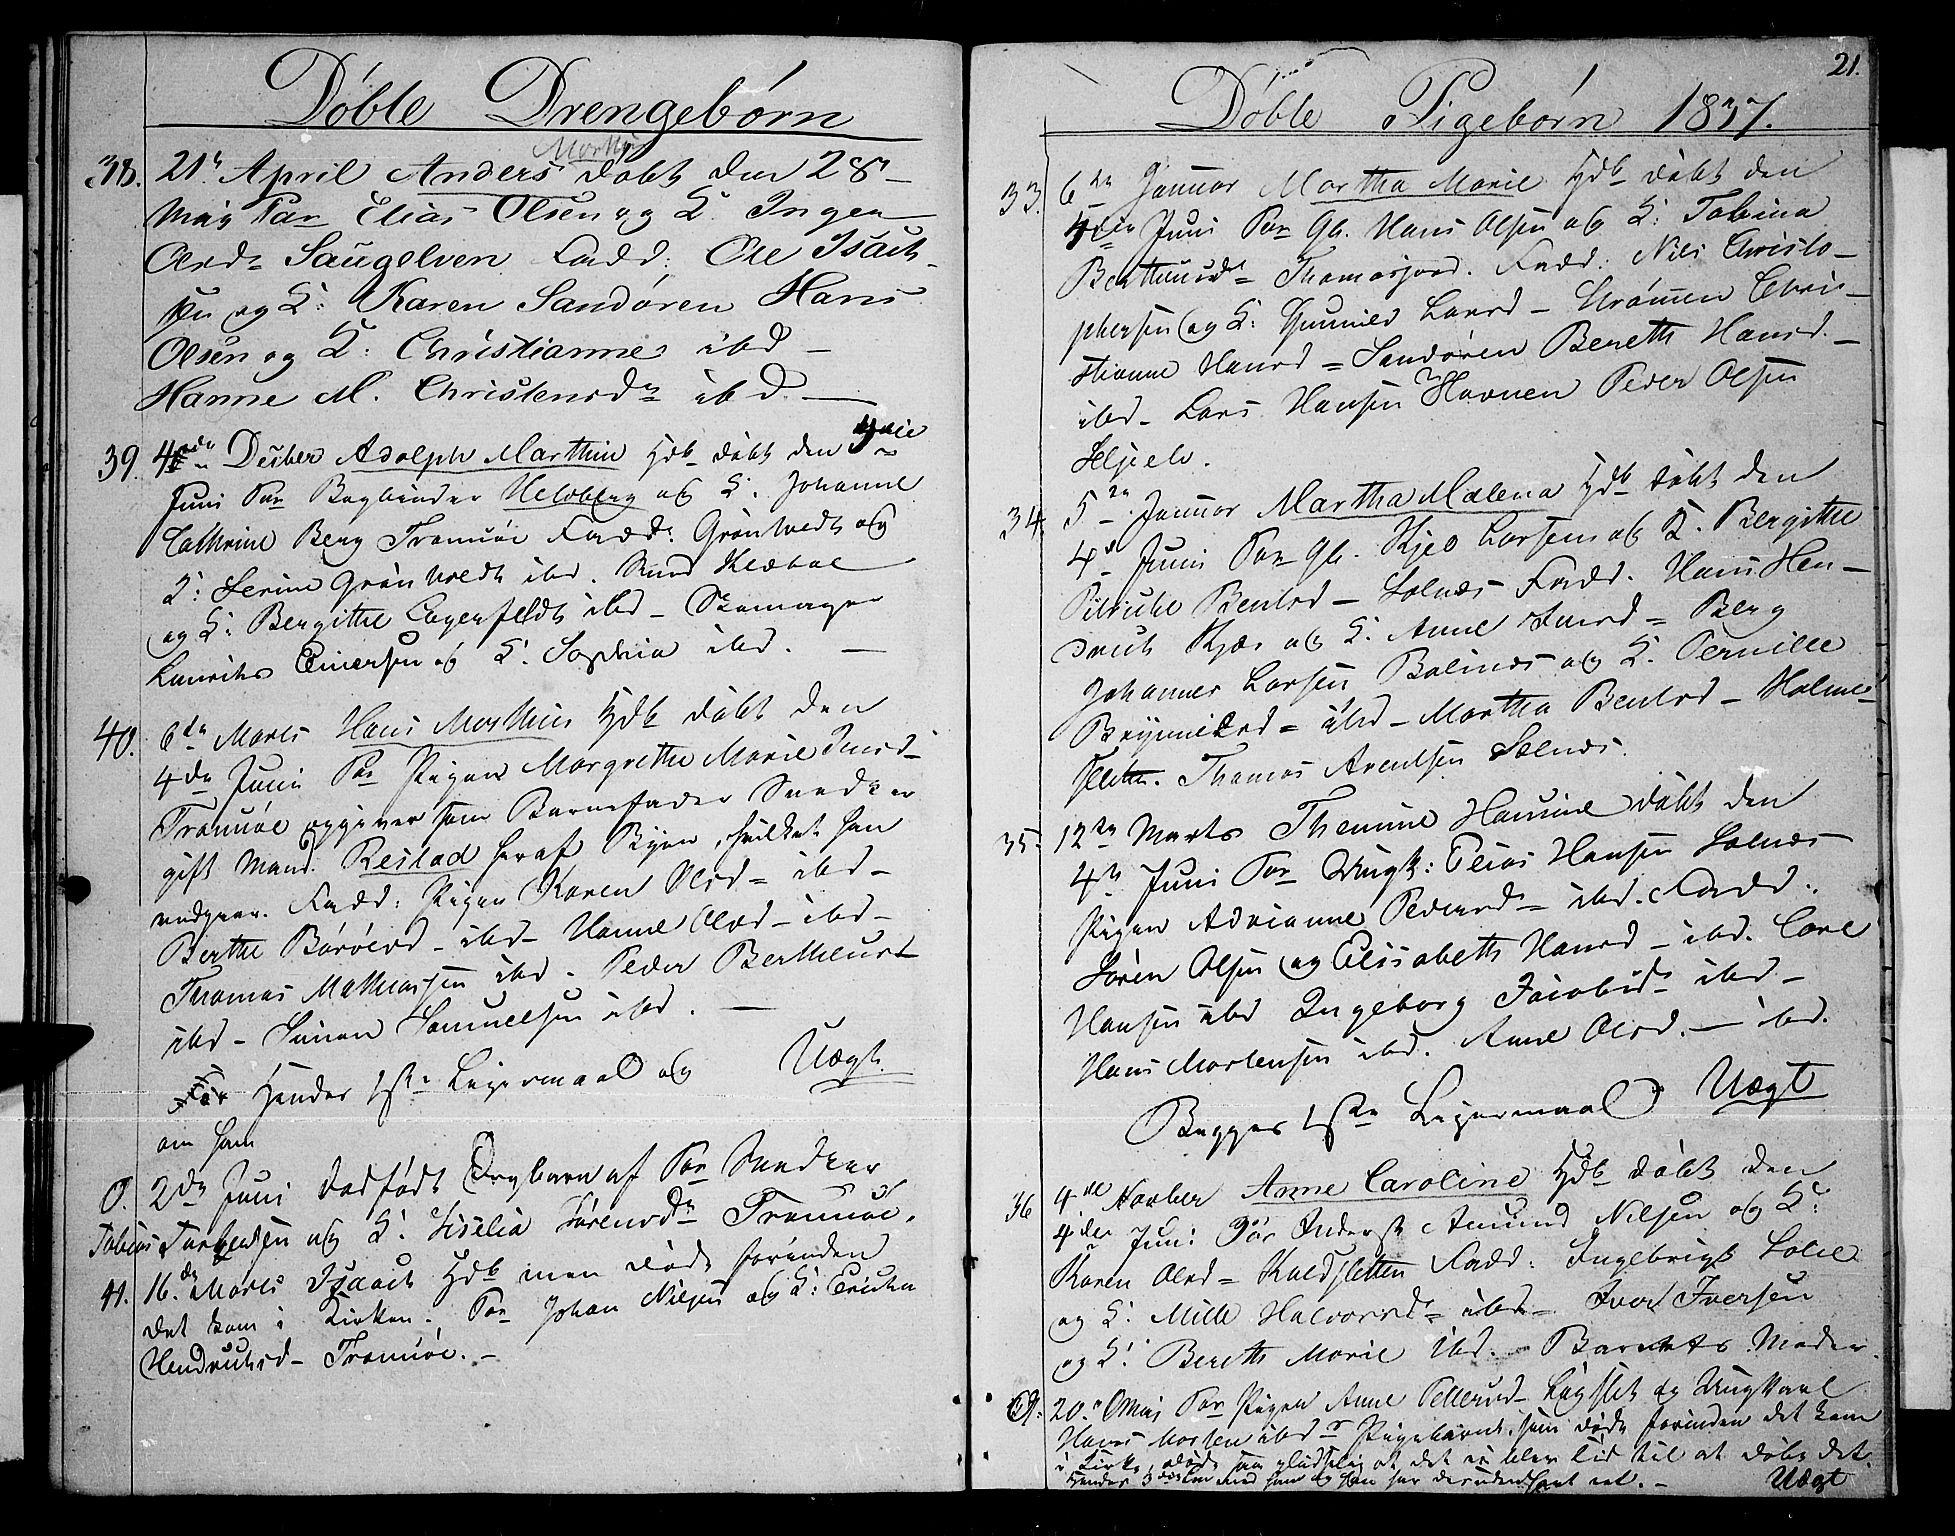 Döbte Drengebörn
Morten
38. 21de April Anders döbt den 28de
Mai For Elias Olsen og K. Inger
Olsd= Saugelven Fadd: Ole Isach-
sen og K: Karen Sandören Hans
Olsen og K: Christianne ibd -
Hanne M. Christensd= ibd. -
39. 4de Decber Adolph Marthin Hdb döbt den 4de
Juni For Bogbinder Heloberg og K. Johanne
Cathrine Berg Tromsöe Fadd: Grönvedt og
K: Serine Grönvoldt ibd. Smed Klæboe
og K: Bergithe Eegenfeldt ibd - Skomager
Laurits Einersen og K. Sophia ibd. -
40. 6de Marts Hans Morthin Hdb döbt den
4de Juni For Pigen Margrethe Marie Jensd-
Tromsöe opgiver som Barnefader Snedker
gift Mand Restad her af Byen, hvilket han
vedgaar. Fadd: Pigen Karen Olsd= ibd-
Berthe Börösd- ibd- Hanne Olsd- ibd-
Thomas Mathiassen ibd - Peder Bertheus-
ibd - Simon Samuelsen ibd. -
For hendes 1ste Leiermaal og Uægt.
om ham
O. 2den Juni dødfödt Drgbarn af For Snedker
Tobias Torgersen og K: Sisilia Sörensd= Tromsöe.
41. 16de Marts Isaach Hdb men döde forinden
det kom i Kirken. For Johan Nilsen og K: Ericka
Hendrichsd- Tromsöe. -
21.
Döbte Pigebörn 1837.
33. 6de Januar Martha Marie Hdb döbt den
4den Juni For Gb. Hans Olsen og K: Tobina
Bertheusd= Thomasjord. Fadd: Nils Christo-
phersen og K: Gunnild Larsd- Strömmen Chri-
stianne Hansd= Sandören Bereth Hansd.-
ibd- Lars Hansen Havnen Peder Olsen
Selje.
34. 5te Januar Martha Malena Hdb döbt den
4de Juni For Gb. Kjel Larsen og K. Bergithe
Bentsd- Solnæs Fadd. Hans Hen-
drich Kjær og K. Anne Jensd= Berg
Johannes Larsen Balsnes og K. Pernille
Brynnildsd= ibd- Martha Bentsd- Holme-
sletten. Thomas Arentsen Solnæs.
35. 12te Marts Themine Hanine döbt den
4de Juni For Ungk: Elias Hansen Solnæs
Pigen Adrianne Pedersd= ibd. Fadd.
Sören Olsen og Elisabeth Hansd- ibd. Carl
Hansen ibd Ingeborg Jacobsd= ibd-
Hans Mortensen ibd. Anne Olsd.- ibd.
Begges 1ste Leiermaal Uægt
36 4de Novber Anne Caroline Hdb döbt den
4den Juni For Inderst Amund Nilsen og K:
Karen Olsd= Kaldsletten Fadd: Ingebrigt Solie
og K: Mille Halvorsd= ibd- Iver Iversen
og K: Bereth Marie ibd. - Barnets Moder.
20de Mai For Pigen Anne Pettersd- Lögslet og Ungkarl
Hans Morten ibd Pigebarn, som döde forinden det kom
i Kirke, döde saa pludselig at det ei blev tid til at döbe det.
hendes 3die med ham og han har desuden havt eet. - Uægt